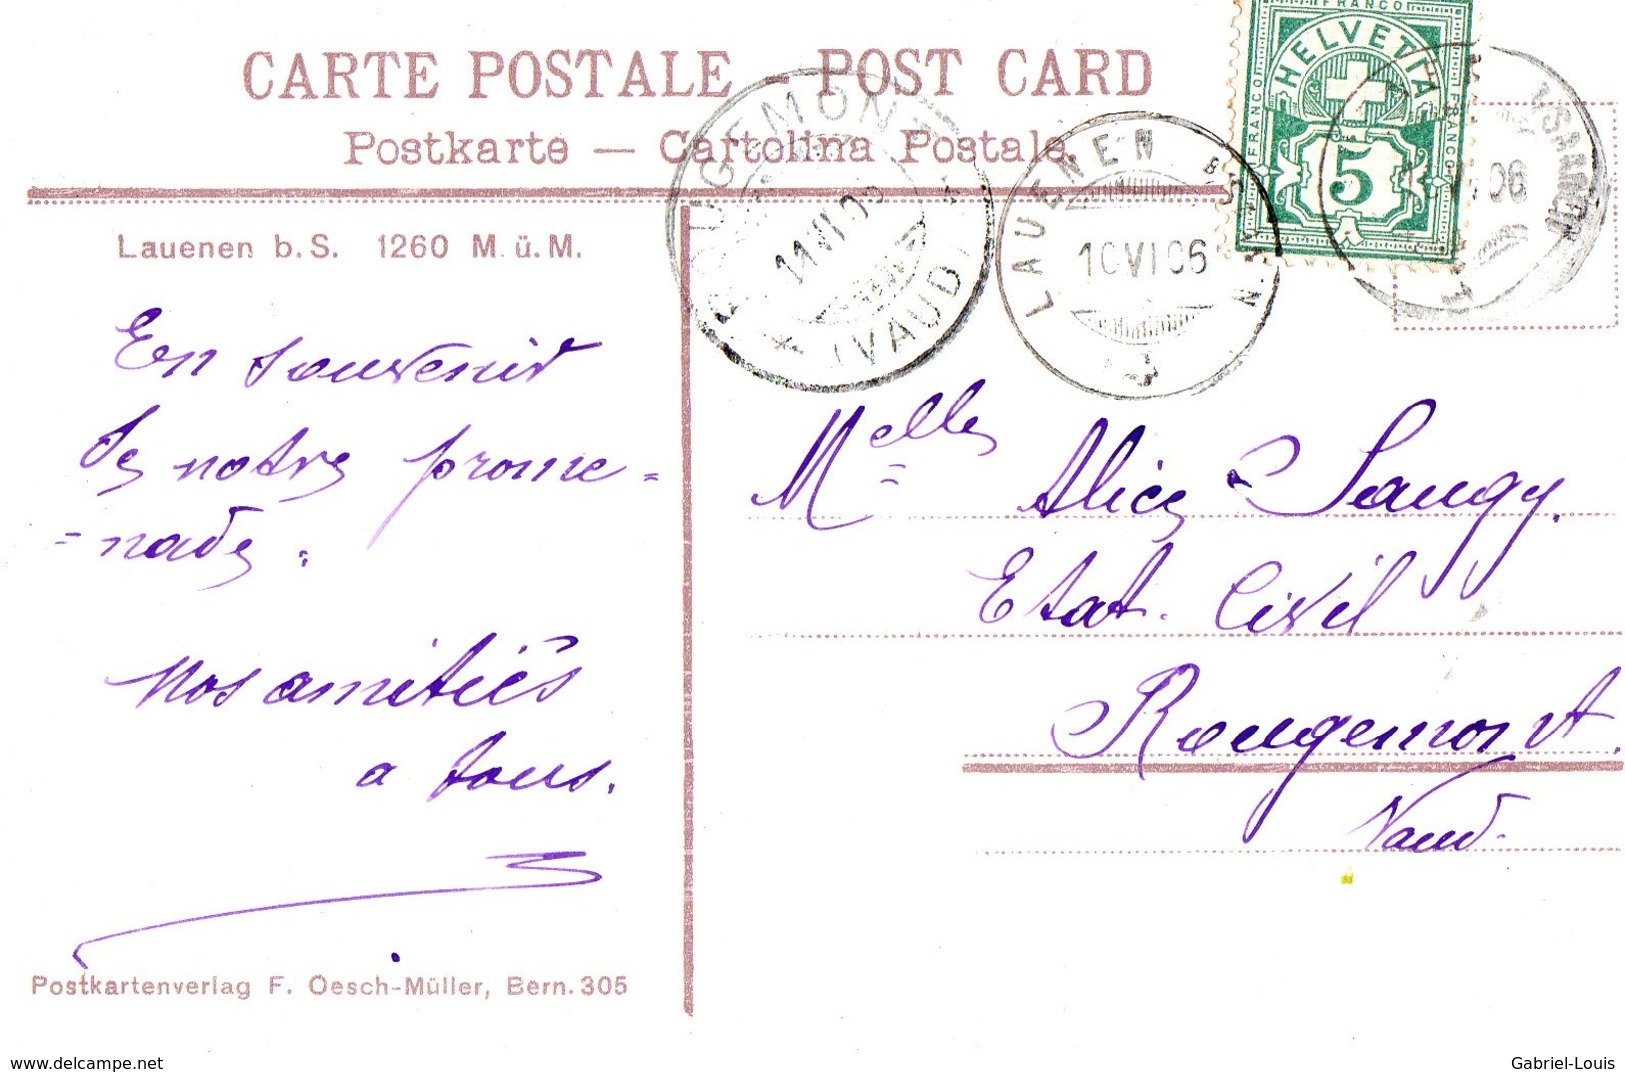 CARTE POSTALE - POST CARD
Postkarte — Cartolina Postale.
FRANCO
HELVETIA
FRANCO
FRANCO
5
ROUGEMONT
11 VI 06
* (VAUD)
LAUENEN
10 VI 06
06
Lauenen b. S. 1260 M. ü. M.
En souvenir
de notre prome-
-nade.
Nos amitiés
a tous.
Melle Alice Saugy.
Etat. Civil
Rougemont.
Vaud.
Postkartenverlag F. Oesch-Müller, Bern. 305
www.delcampe.net
Gabriel-Louis